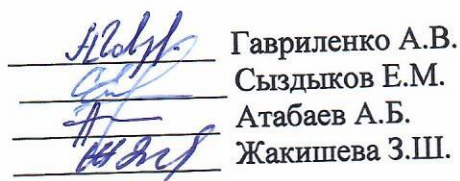 Гавриленко А.В.
Сыздыков Е.М.
Атабаев А.Б.
Жакишева З.Ш.